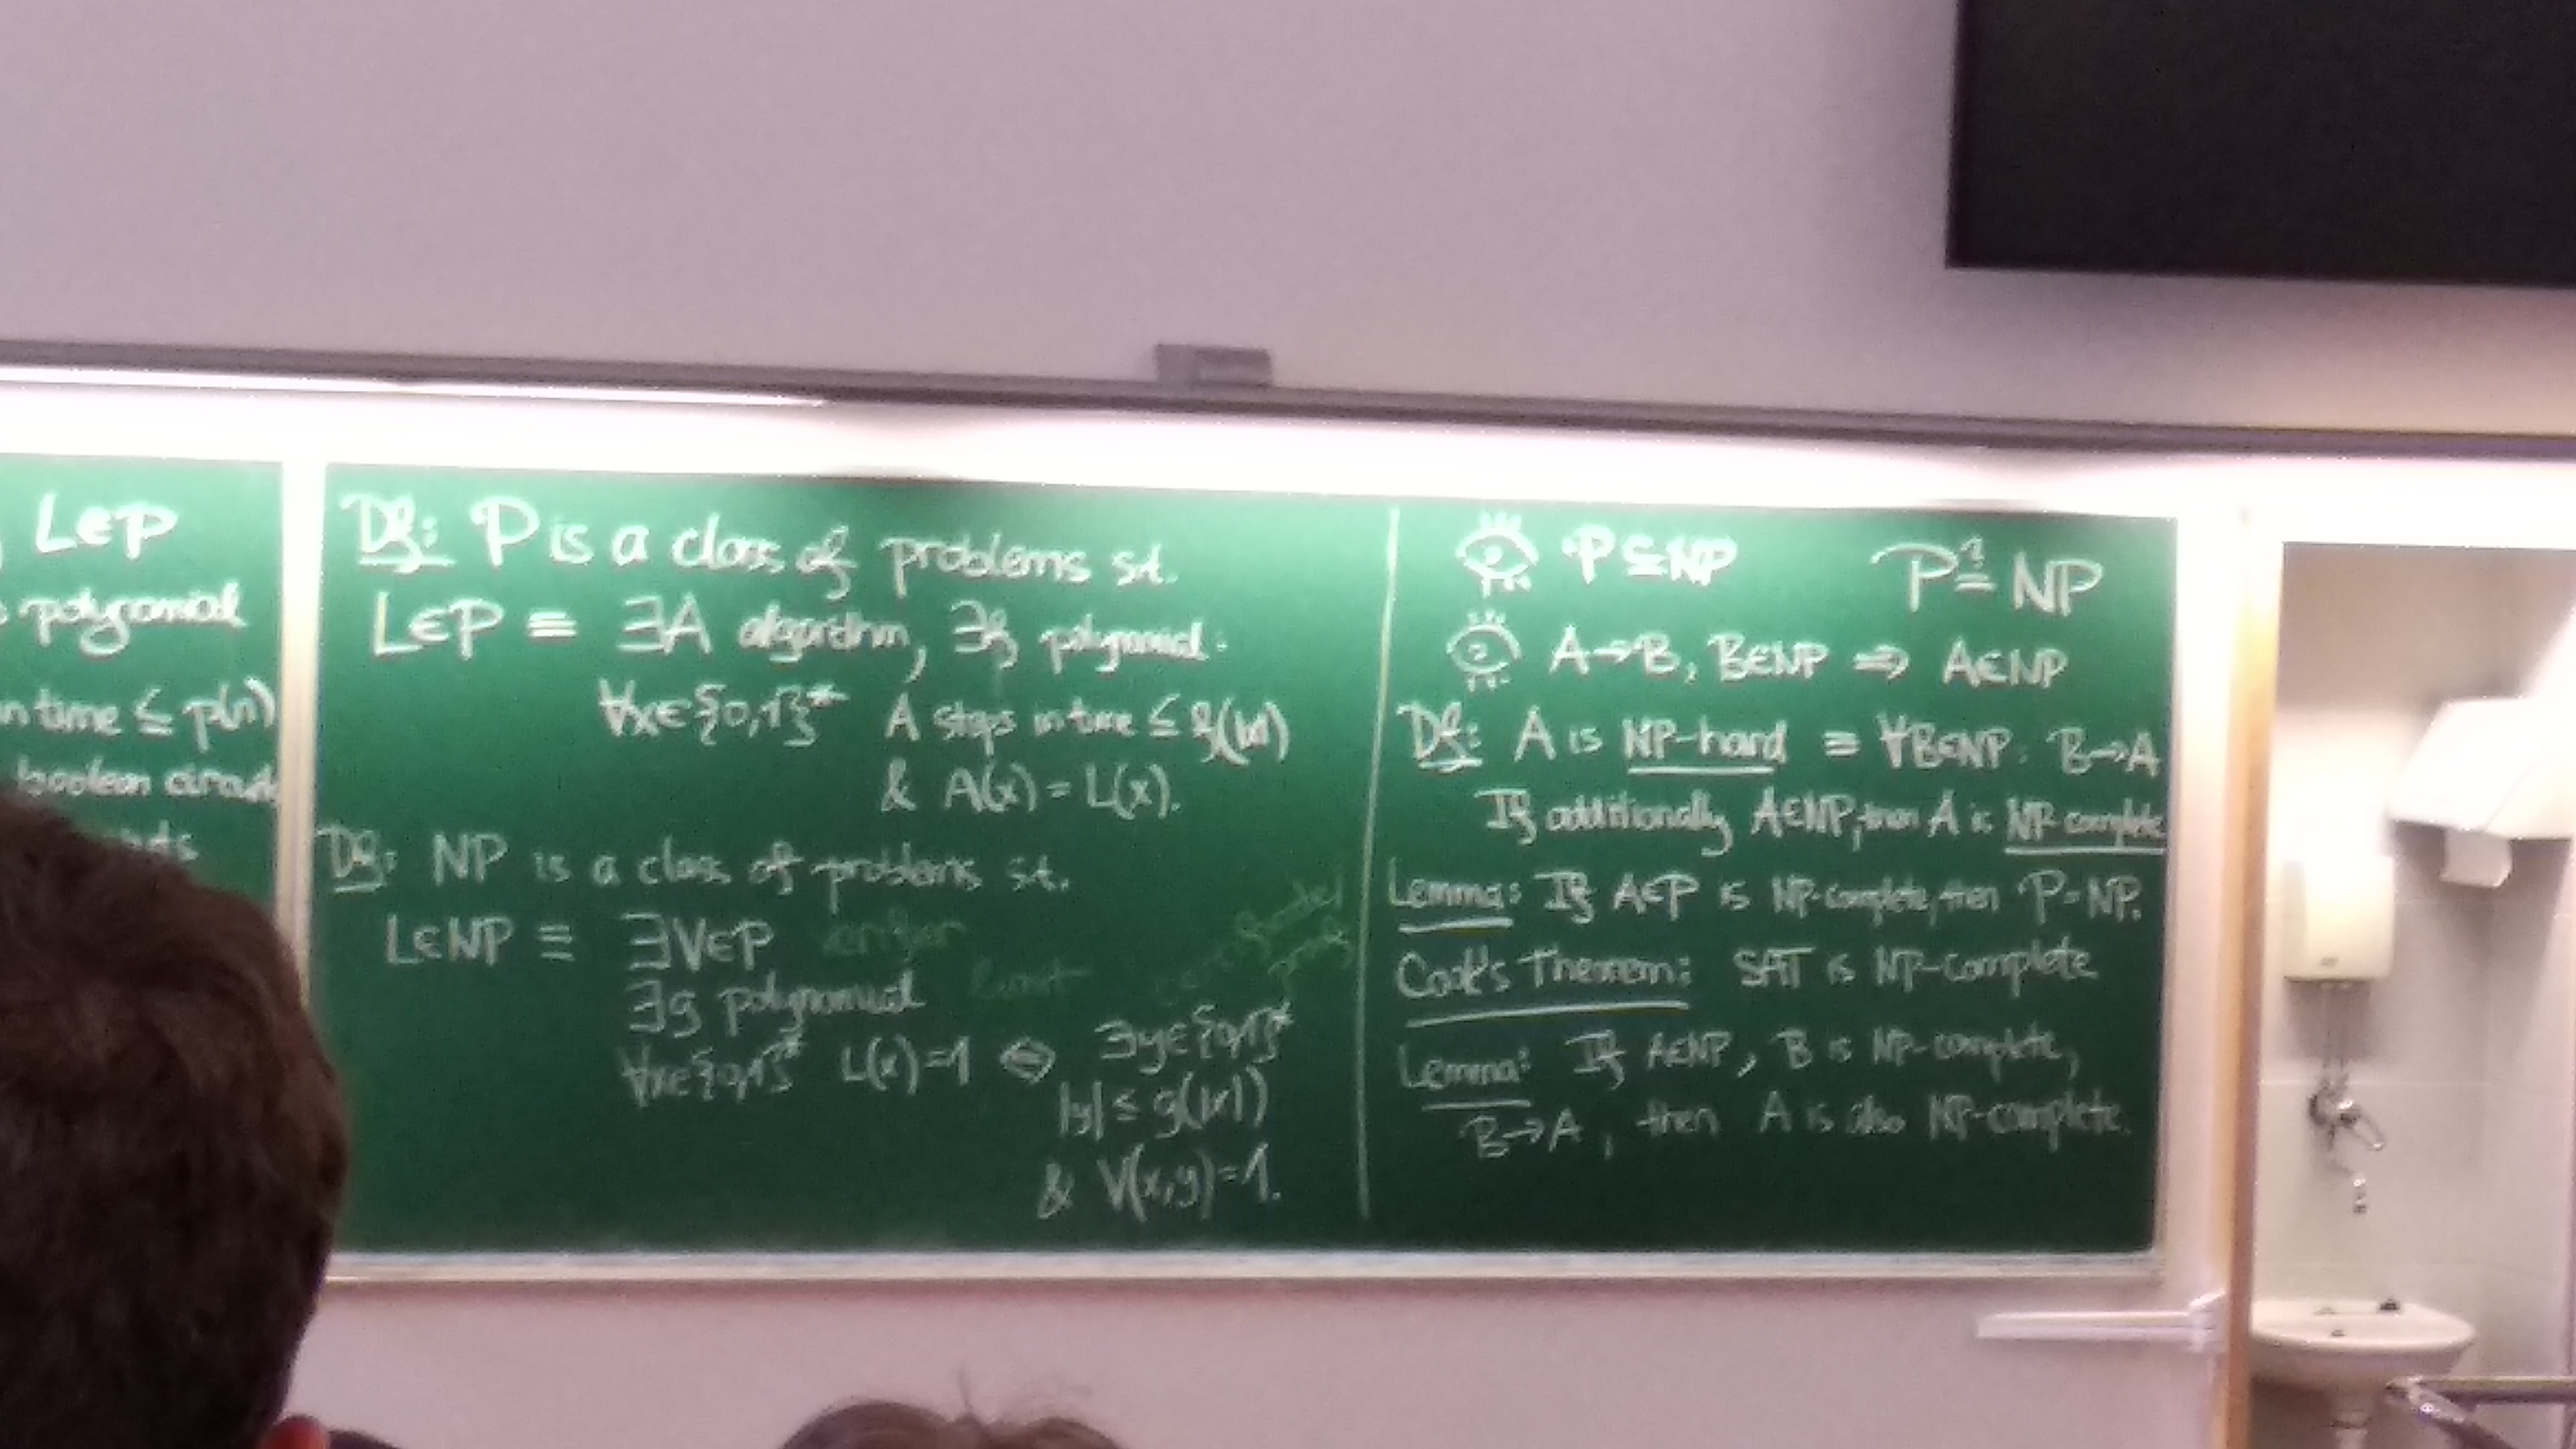 L∈P
polynomial
in time ≤ p(n)
boolean circuit
Df: P is a class of problems s.t.
L∈P ≡ ∃A algorithm, ∃f polynomial:
∀x∈{0,1}* A stops in time ≤ f(|x|)
& A(x) = L(x).
Df: NP is a class of problems s.t.
L∈NP ≡ ∃V∈P
∃g polynomial
∀x∈{0,1}* L(x)=1 ⇔ ∃y∈{0,1}*
|y| ≤ g(|x|)
& V(x,y)=1.
P⊆NP P ≟ NP
A→B, B∈NP ⇒ A∈NP
Df: A is NP-hard ≡ ∀B∈NP: B→A
If additionally A∈NP, then A is NP-complete
Lemma: If A∈P is NP-complete, then P=NP.
Cook's Theorem: SAT is NP-complete
Lemma: If A∈NP, B is NP-complete,
B→A, then A is also NP-complete.